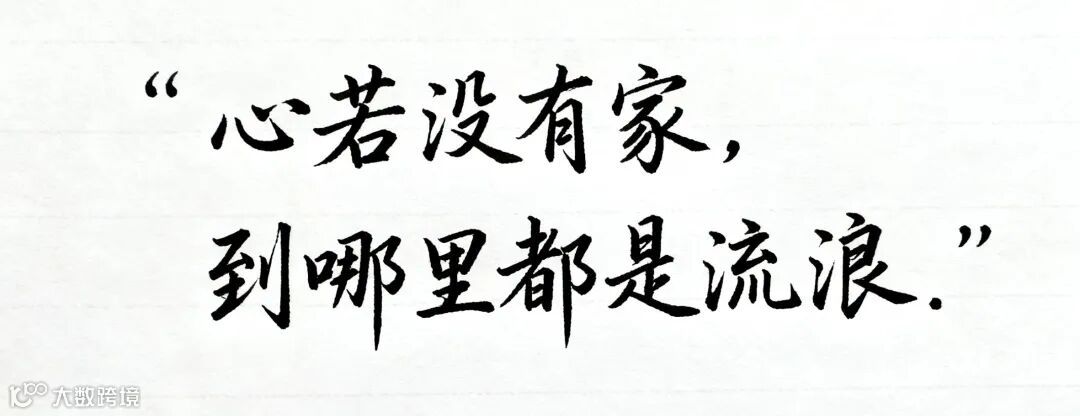 “心若没有家，
到哪里都是流浪.”
大数跨境